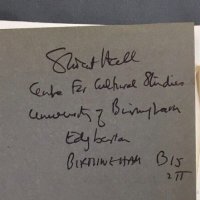 Stuart Hall
Centre For Cultural Studies
University of Birmingham
Edgbaston
BIRMINGHAM B15
2TT